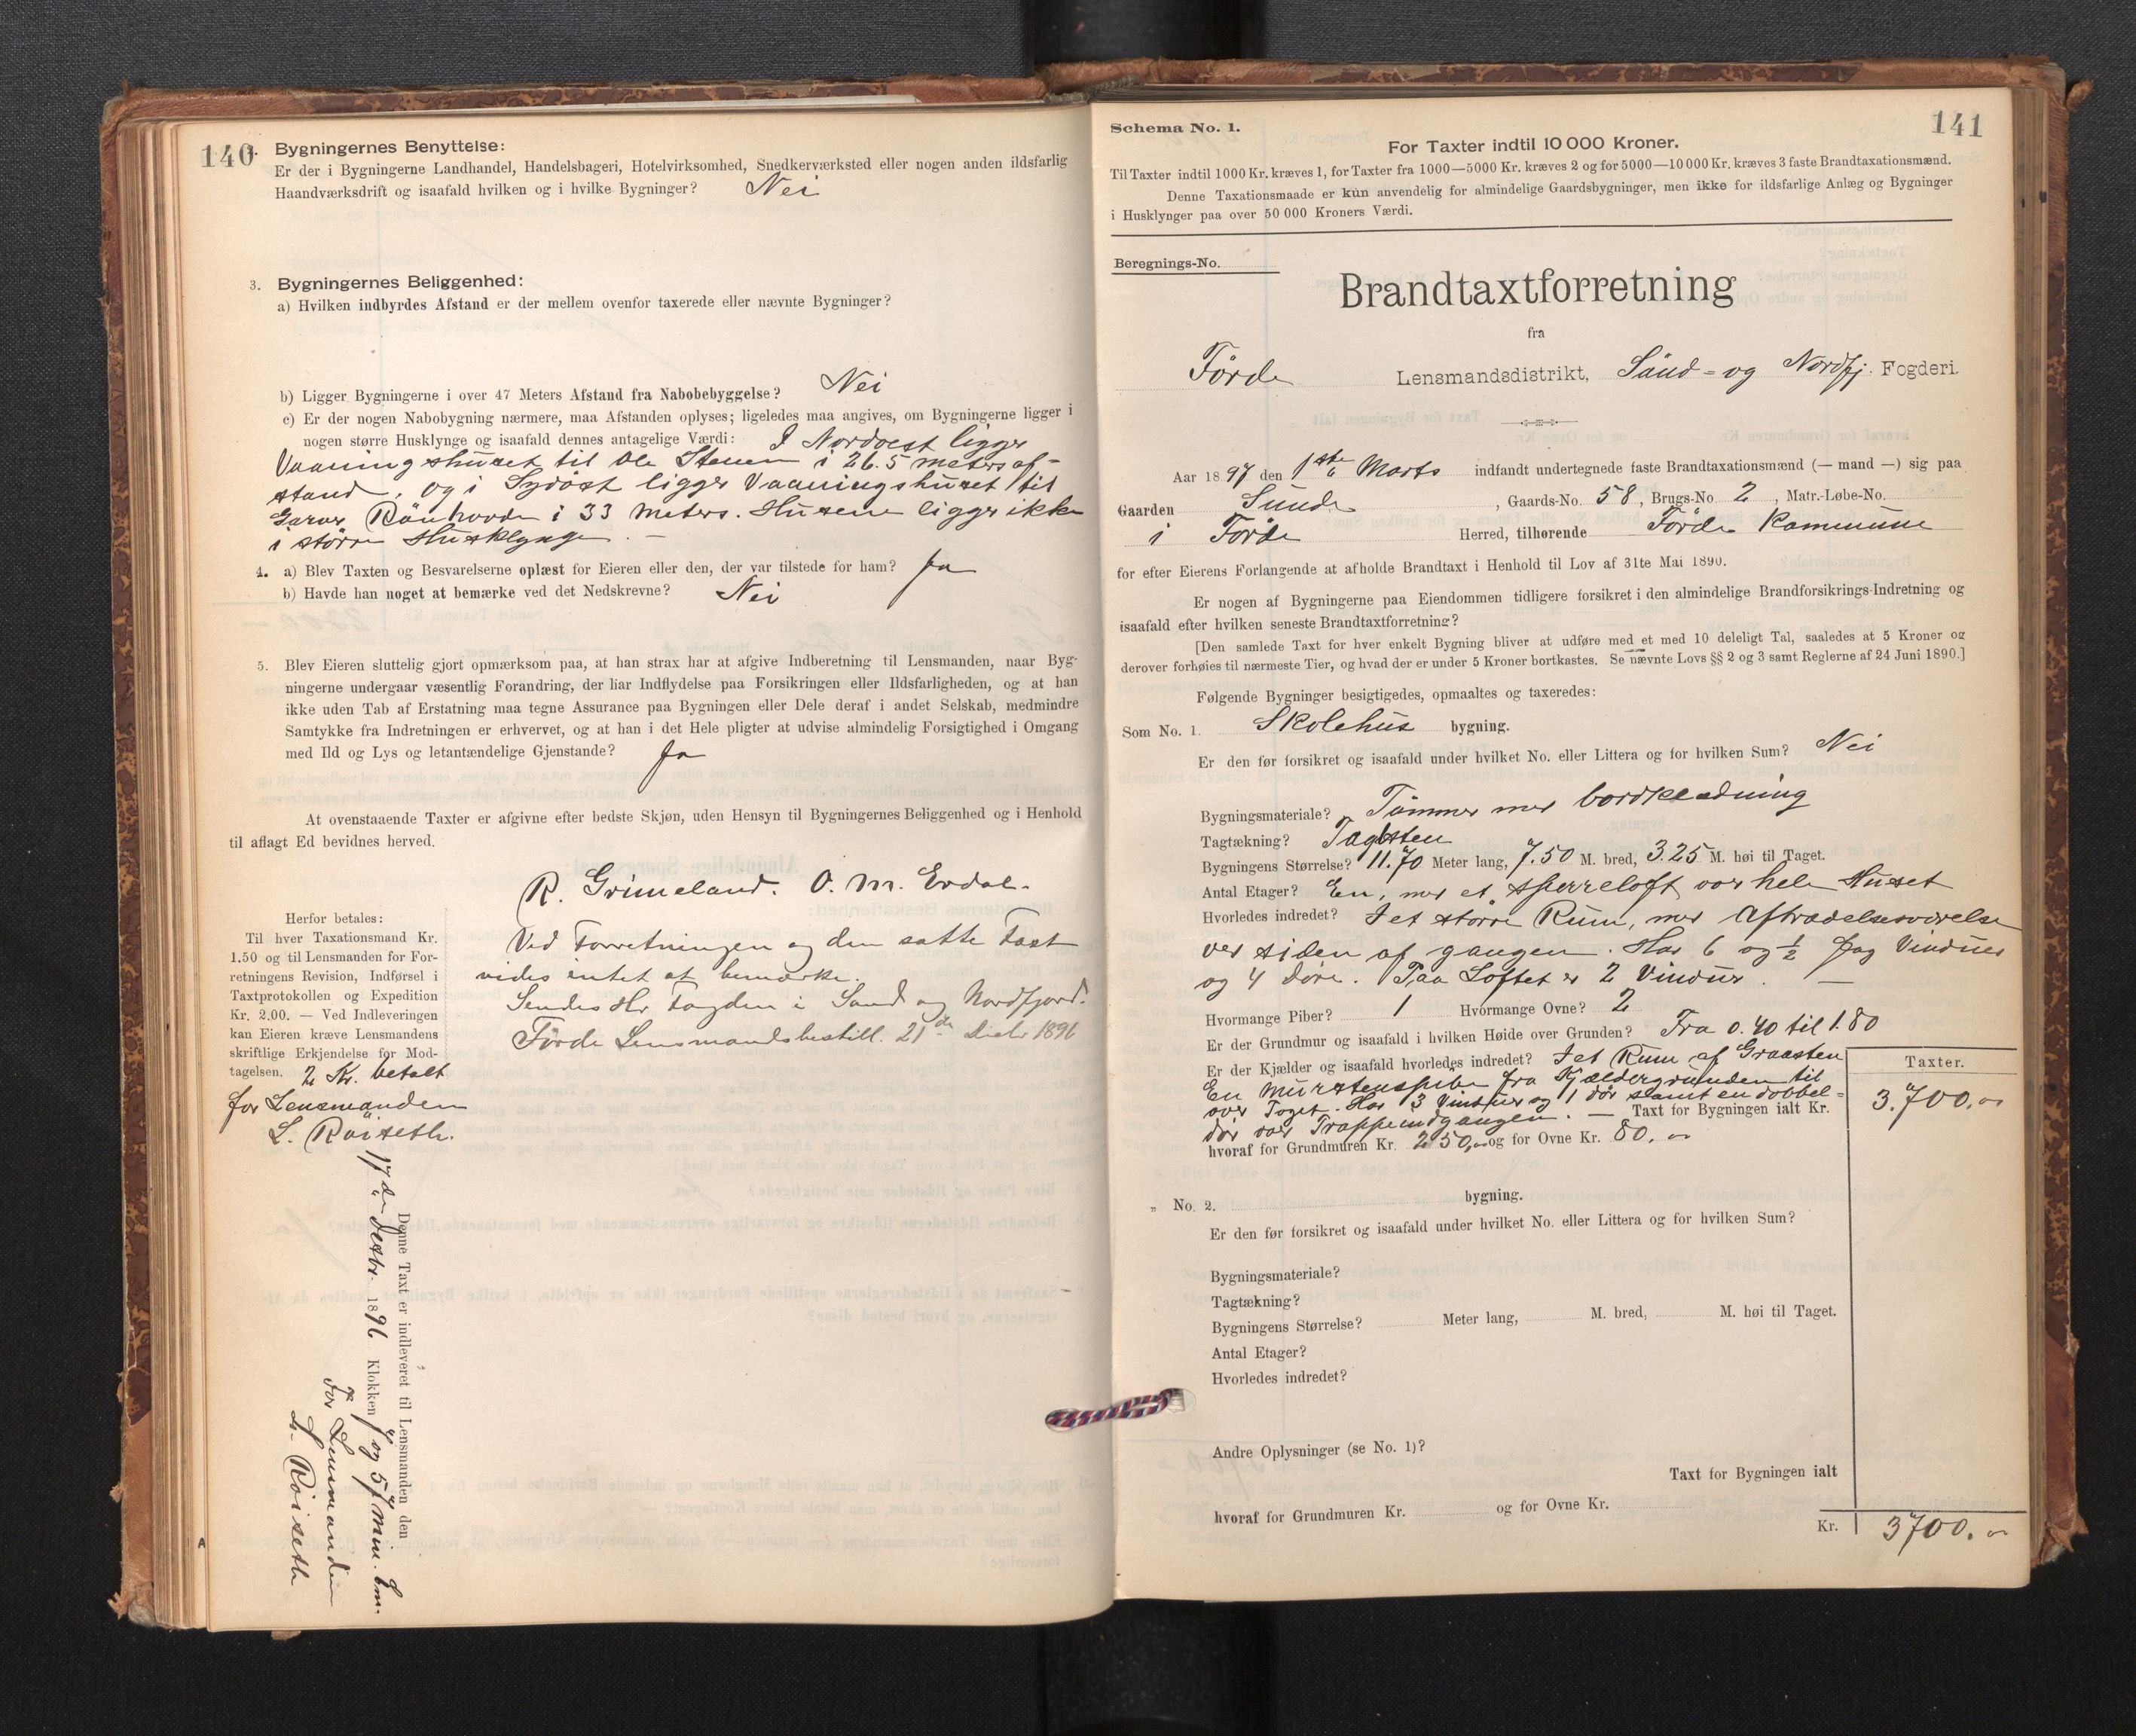 140
2. Bygningernes Benyttelse:
Er der i Bygningerne Landhandel, Handelsbageri, Hotelvirksomhed, Snedkerværksted eller nogen anden ildsfarlig
Haandværksdrift og isaafald hvilken og i hvilke Bygninger? Nei
3. Bygningernes Beliggenhed:
a) Hvilken indbyrdes Afstand er der mellem ovenfor taxerede eller nævnte Bygninger?
b) Ligger Bygningerne i over 47 Meters Afstand fra Nabobebyggelse? Nei
c) Er der nogen Nabobygning nærmere, maa Afstanden oplyses; ligeledes maa angives, om Bygningerne ligger i
nogen større Husklynge og isaafald dennes antagelige Værdi: I Nordvest ligger
Vaaningshuset til Ole Stenen i 26.5 meters af-
stand, og i Sydöst ligger Vaaningshuset til
Rönhovde i 33 meters. Husene ligger ikke
i större Husklynge. —
4. a) Blev Taxten og Besvarelserne oplæst for Eieren eller den, der var tilstede for ham? Ja
b) Havde han noget at bemærke ved det Nedskrevne? Nei
5. Blev Eieren sluttelig gjort opmærksom paa, at han strax har at afgive Indberetning til Lensmanden, naar Byg-
ningerne undergaar væsentlig Forandring, der har Indflydelse paa Forsikringen eller Ildsfarligheden, og at han
ikke uden Tab af Erstatning maa tegne Assurance paa Bygningen eller Dele deraf i andet Selskab, medmindre
Samtykke fra Indretningen er erhvervet, og at han i det Hele pligter at udvise almindelig Forsigtighed i Omgang
med Ild og Lys og letantændelige Gjenstande? Ja
At ovenstaaende Taxter er afgivne efter bedste Skjøn, uden Hensyn til Bygningernes Beliggenhed og i Henhold
til aflagt Ed bevidnes herved.
R. Grimeland. O. M. Erdal.
Herfor betales:
Til hver Taxationsmand Kr.
1.50 og til Lensmanden for For-
retningens Revision, Indførsel i
Taxtprotokollen og Expedition
Kr. 2.00. — Ved Indleveringen
kan Eieren kræve Lensmandens
skriftlige Erkjendelse for Mod-
tagelsen. 2 Kr. betalt
for Lensmanden
L. Röiseth.
Ved Forretningen og den satte Taxt
vides intet at bemærke.
Sendes Hr Fogden i Sönd og Nordfjord.
Förde Lensmandsbestill. 21de Decbr 1896
Denne Taxt er indleveret til Lensmanden den
17de Decbr. 1896 Klokken 1 og 57 min. Em.
For Lensmanden
L. Röiseth
141
Schema No. 1.
For Taxter indtil 10 000 Kroner.
Til Taxter indtil 1000 Kr. kræves 1, for Taxter fra 1000—5000 Kr. kræves 2 og for 5000—10 000 Kr. kræves 3 faste Brandtaxationsmænd.
Denne Taxationsmaade er kun anvendelig for almindelige Gaardsbygninger, men ikke for ildsfarlige Anlæg og Bygninger
i Husklynger paa over 50 000 Kroners Værdi.
Beregnings-No.
Brandtaxtforretning
fra
Förde Lensmandsdistrikt, Sönd- og Nordfj. Fogderi.
Aar 1897 den 1ste Marts indfandt undertegnede faste Brandtaxationsmænd (— mand —) sig paa
Gaarden Sunde, Gaards-No. 58, Brugs-No. 2, Matr.-Løbe-No.
i Förde Herred, tilhørende Förde Kommune
for efter Eierens Forlangende at afholde Brandtaxt i Henhold til Lov af 31te Mai 1890.
Er nogen af Bygningerne paa Eiendommen tidligere forsikret i den almindelige Brandforsikrings-Indretning og
isaafald efter hvilken seneste Brandtaxtforretning?
[Den samlede Taxt for hver enkelt Bygning bliver at udføre med et med 10 deleligt Tal, saaledes at 5 Kroner og
derover forhøies til nærmeste Tier, og hvad der er under 5 Kroner bortkastes. Se nævnte Lovs §§ 2 og 3 samt Reglerne af 24 Juni 1890.]
Følgende Bygninger besigtigedes, opmaaltes og taxeredes:
Som No. 1. Skolehus bygning.
Er den før forsikret og isaafald under hvilket No. eller Littera og for hvilken Sum? Nei
Bygningsmateriale? Tömmer med bordklædning
Tagtækning? Taglsten
Bygningens Størrelse? 11.70 Meter lang, 7.50 M. bred, 3.25 M. høi til Taget.
Antal Etager? En, med et sperreloft over hele Huset
Hvorledes indredet? I et större Rum, med Aftrædelsesværelse
ved siden af gangen. Har 6 og ½ Fag Vinduer
og 4 döre. Paa Loftet er 2 Vinduer. —
Hvormange Piber? 1 Hvormange Ovne? 2
Er der Grundmur og isaafald i hvilken Høide over Grunden? Fra 0.40 til 1.80
Er der Kjælder og isaafald hvorledes indredet? I et Rum af Graasten
En Murstenspibe fra Kjældergrunden til
over Taget. Har 3 Vinduer og 1 dör samt en dobbel-
dör ved Trappeindgangen. — Taxt for Bygningen ialt Kr.
Taxter.
3.700.00
hvoraf for Grundmuren Kr. 250,00 og for Ovne Kr. 80.00
„ No. 2. bygning.
Er den før forsikret og isaafald under hvilket No. eller Littera og for hvilken Sum?
Bygningsmateriale?
Tagtækning?
Bygningens Størrelse? Meter lang, M. bred, M. høi til Taget.
Antal Etager?
Hvorledes indredet?
Andre Oplysninger (se No. 1)?
Taxt for Bygningen ialt
hvoraf for Grundmuren Kr. og for Ovne Kr.
Kr. 3700.00